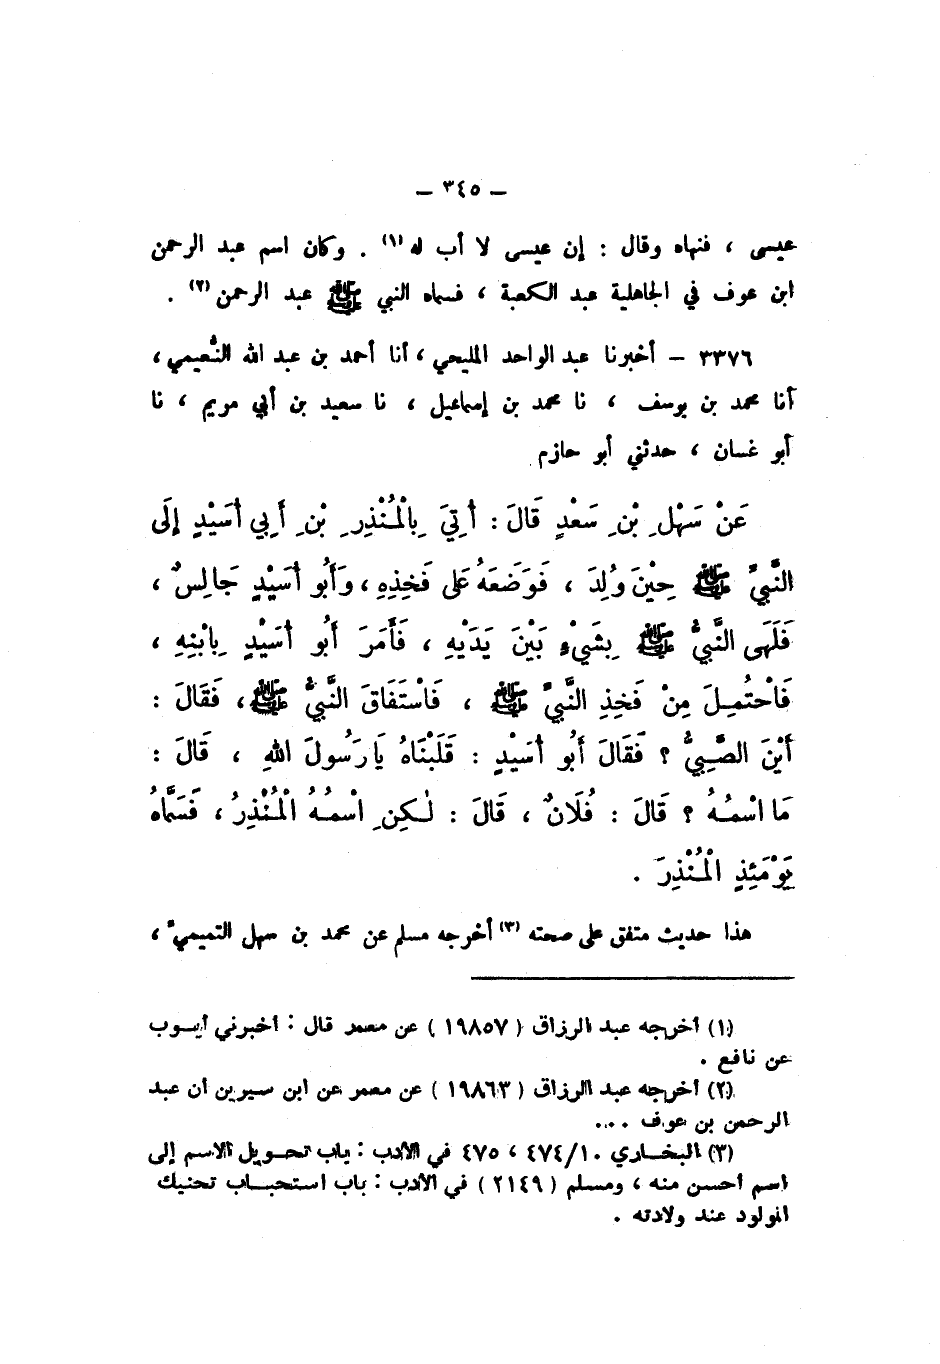 – ٣٤٥ –
عيسى ، فنهاه وقال : إن عيسى لا أب له (١) . وكان اسم عبد الرحمن
ابن عوف في الجاهلية عبد الكعبة ، فسماه النبي ﷺ عبد الرحمن (٢) .
٣٣٧٦ – أخبرنا عبد الواحد المليحي ، أنا أحمد بن عبد الله النُّعيمي ،
أنا محمد بن يوسف ، نا محمد بن إسماعيل ، نا سعيد بن أبي مريم ، نا
أبو غسان ، حدثني أبو حازم
عَنْ سَهْلِ بْنِ سَعْدٍ قَالَ : أُتِيَ بِالْمُنْذِرِ بْنِ أَبِي أُسَيْدٍ إِلَى
النَّبِيِّ ﷺ حِيْنَ وُلِدَ ، فَوَضَعَهُ عَلَى فَخِذِهِ ، وَأَبُو أُسَيْدٍ جَالِسٌ ،
فَلَهَى النَّبِيُّ ﷺ بِشَيْءٍ بَيْنَ يَدَيْهِ ، فَأَمَرَ أَبُو أُسَيْدٍ بِابْنِهِ ،
فَاحْتُمِلَ مِنْ فَخِذِ النَّبِيِّ ﷺ ، فَاسْتَفَاقَ النَّبِيُّ ﷺ ، فَقَالَ :
أَيْنَ الصَّبِيُّ ؟ فَقَالَ أَبُو أُسَيْدٍ : قَلَبْنَاهُ يَا رَسُولَ اللهِ ، قَالَ :
مَا اسْمُهُ ؟ قَالَ : فُلَانٌ ، قَالَ : لٰكِنِ اسْمُهُ الْمُنْذِرُ ، فَسَمَّاهُ
يَوْمَئِذٍ الْمُنْذِرَ .
هذا حديث متفق على صحته (٣) أخرجه مسلم عن محمد بن سهل التميميّ ،
(١) أخرجه عبد الرزاق ( ١٩٨٥٧ ) عن معمر قال : أخبرني أيوب
عن نافع .
(٢) أخرجه عبد الرزاق ( ١٩٨٦٣ ) عن معمر عن ابن سيرين أن عبد
الرحمن بن عوف ....
(٣) البخاري ٤٧٤/١٠ ، ٤٧٥ في الأدب : باب تحويل الاسم إلى
اسم أحسن منه ، ومسلم ( ٢١٤٩ ) في الأدب : باب استحباب تحنيك
المولود عند ولادته .